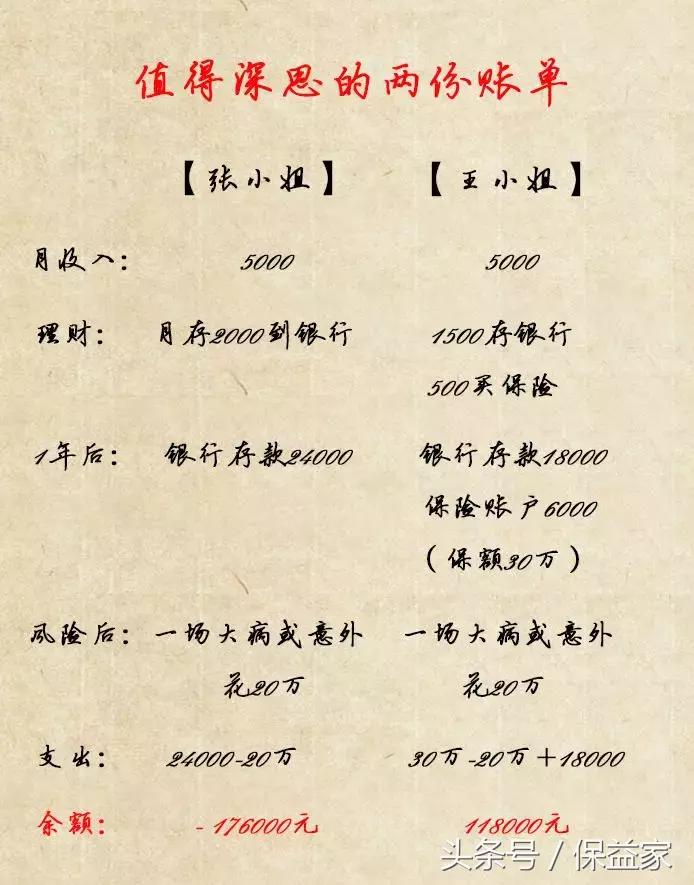 值得深思的两份账单
【张小姐】 【王小姐】
月收入： 5000 5000
理财： 月存2000到银行 1500存银行
500买保险
1年后： 银行存款24000 银行存款18000
保险账户6000
（保额30万）
风险后： 一场大病或意外 一场大病或意外
花20万 花20万
支出： 24000-20万 30万-20万＋18000
余额： -176000元 118000元
头条号／保益家